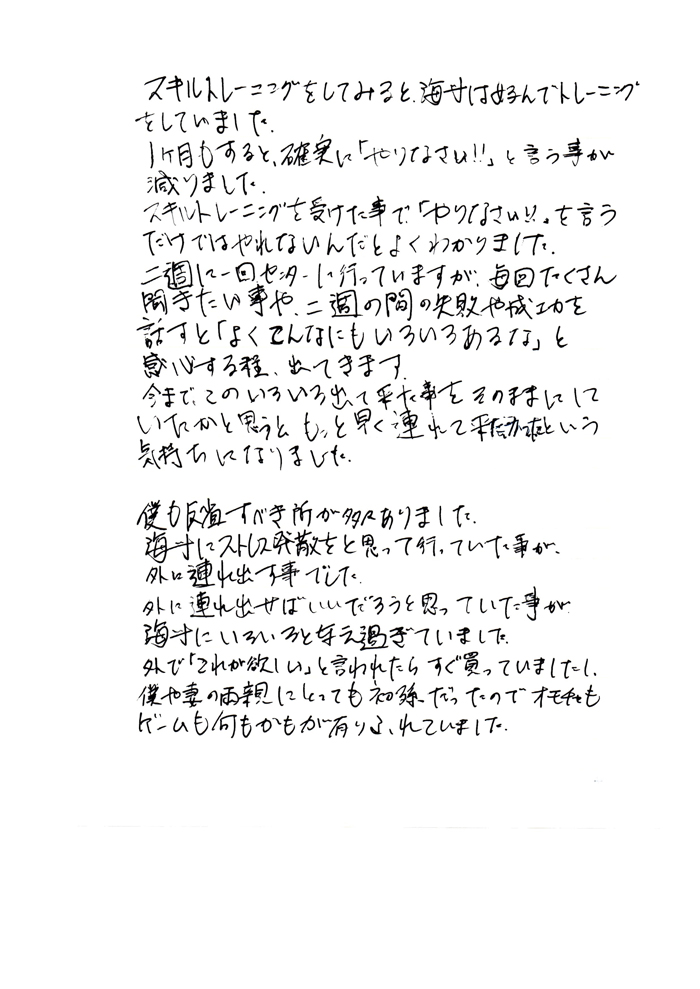 スキルトレーニングをしてみると、海寸は好んでトレーニング
をしていました。
1ヶ月もすると、確実に「やりなさい!!」と言う事が
減りました。
スキルトレーニングを受けた事で「やりなさい!!」を言う
だけではやれないんだとよくわかりました。
二週に一回センターに行っていますが、毎回たくさん
聞きたい事や、二週の間の失敗や成功を
話すと「よくこんなにもいろいろあるな」と
感心する程、出てきます。
今まで、このいろいろ出て来た事をそのままにして
いたかと思うと、もっと早く連れて来たかったという
気持ちになりました。
僕も反省すべき所が多々ありました。
海寸にストレス発散をと思って行っていた事が、
外に連れ出す事でした。
外に連れ出せばいいだろうと思っていた事が
海寸にいろいろと与え過ぎていました。
外で「これが欲しい」と言われたらすぐ買っていましたし、
僕や妻の両親にとっても初孫だったのでオモチャも
ゲームも何もかもが有りふれていました。